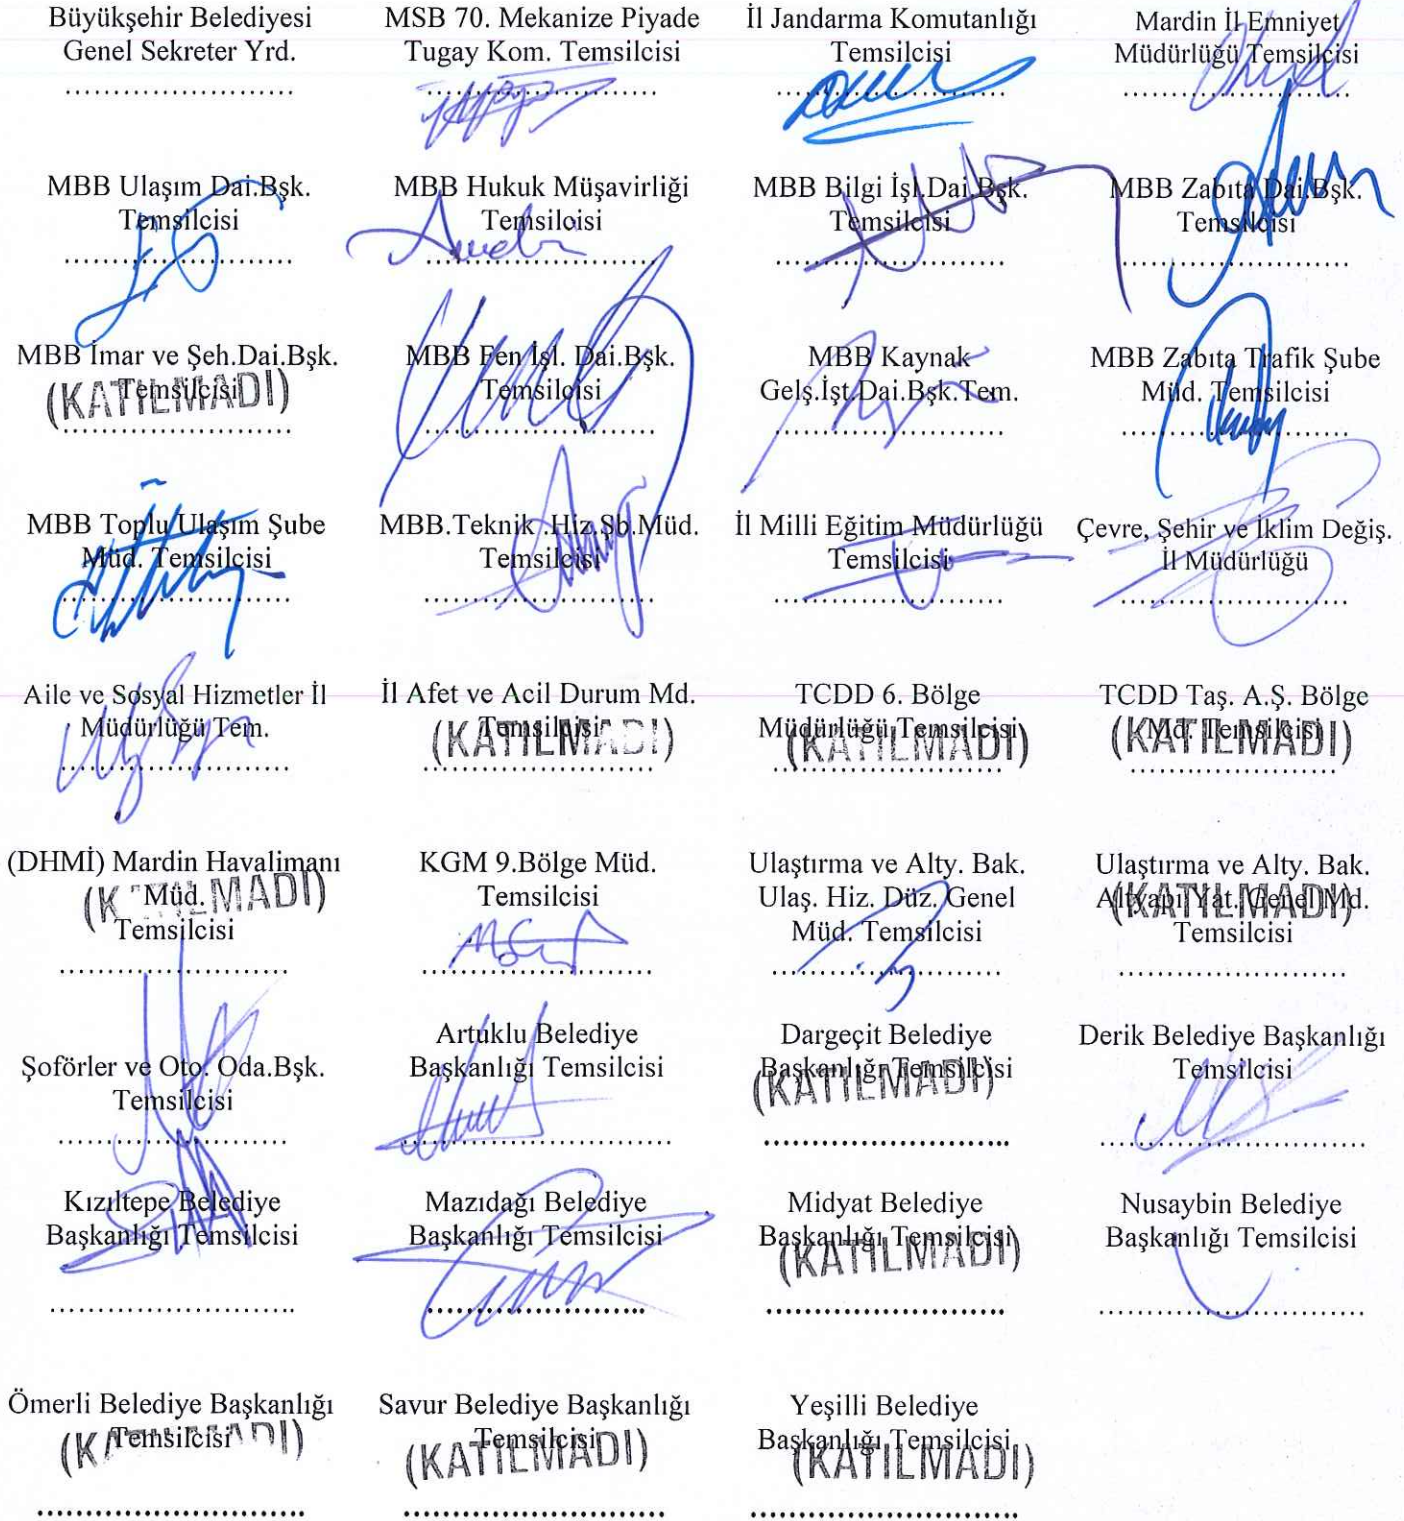 Büyükşehir Belediyesi
Genel Sekreter Yrd.
........................
MSB 70. Mekanize Piyade
Tugay Kom. Temsilcisi
........................
İl Jandarma Komutanlığı
Temsilcisi
........................
Mardin İl Emniyet
Müdürlüğü Temsilcisi
........................
MBB Ulaşım Dai.Bşk.
Temsilcisi
........................
MBB Hukuk Müşavirliği
Temsilcisi
........................
MBB Bilgi İşl.Dai.Bşk.
Temsilcisi
........................
MBB Zabıta Dai.Bşk.
Temsilcisi
........................
MBB İmar ve Şeh.Dai.Bşk.
Temsilcisi
(KATILMADI)
........................
MBB Fen İşl. Dai.Bşk.
Temsilcisi
........................
MBB Kaynak
Gelş.İşt.Dai.Bşk.Tem.
........................
MBB Zabıta Trafik Şube
Müd. Temsilcisi
........................
MBB Toplu Ulaşım Şube
Müd. Temsilcisi
........................
MBB.Teknik .Hiz.Şb.Müd.
Temsilcisi
........................
İl Milli Eğitim Müdürlüğü
Temsilcisi
........................
Çevre, Şehir ve İklim Değiş.
İl Müdürlüğü
........................
Aile ve Sosyal Hizmetler İl
Müdürlüğü Tem.
........................
İl Afet ve Acil Durum Md.
Temsilcisi
(KATILMADI)
........................
TCDD 6. Bölge
Müdürlüğü Temsilcisi
(KATILMADI)
........................
TCDD Taş. A.Ş. Bölge
Md. Temsilcisi
(KATILMADI)
......................
(DHMİ) Mardin Havalimanı
Müd.
(KATILMADI)
Temsilcisi
........................
KGM 9.Bölge Müd.
Temsilcisi
........................
Ulaştırma ve Alty. Bak.
Ulaş. Hiz. Düz. Genel
Müd. Temsilcisi
........................
Ulaştırma ve Alty. Bak.
Altyapı Yat. Genel Md.
(KATILMADI)
Temsilcisi
........................
Şoförler ve Oto. Oda.Bşk.
Temsilcisi
........................
Artuklu Belediye
Başkanlığı Temsilcisi
............................
Dargeçit Belediye
Başkanlığı Temsilcisi
(KATILMADI)
..........................
Derik Belediye Başkanlığı
Temsilcisi
............................
Kızıltepe Belediye
Başkanlığı Temsilcisi
..........................
Mazıdağı Belediye
Başkanlığı Temsilcisi
.......................
Midyat Belediye
Başkanlığı Temsilcisi
(KATILMADI)
.........................
Nusaybin Belediye
Başkanlığı Temsilcisi
............................
Ömerli Belediye Başkanlığı
Temsilcisi
(KATILMADI)
............................
Savur Belediye Başkanlığı
Temsilcisi
(KATILMADI)
............................
Yeşilli Belediye
Başkanlığı Temsilcisi
(KATILMADI)
............................